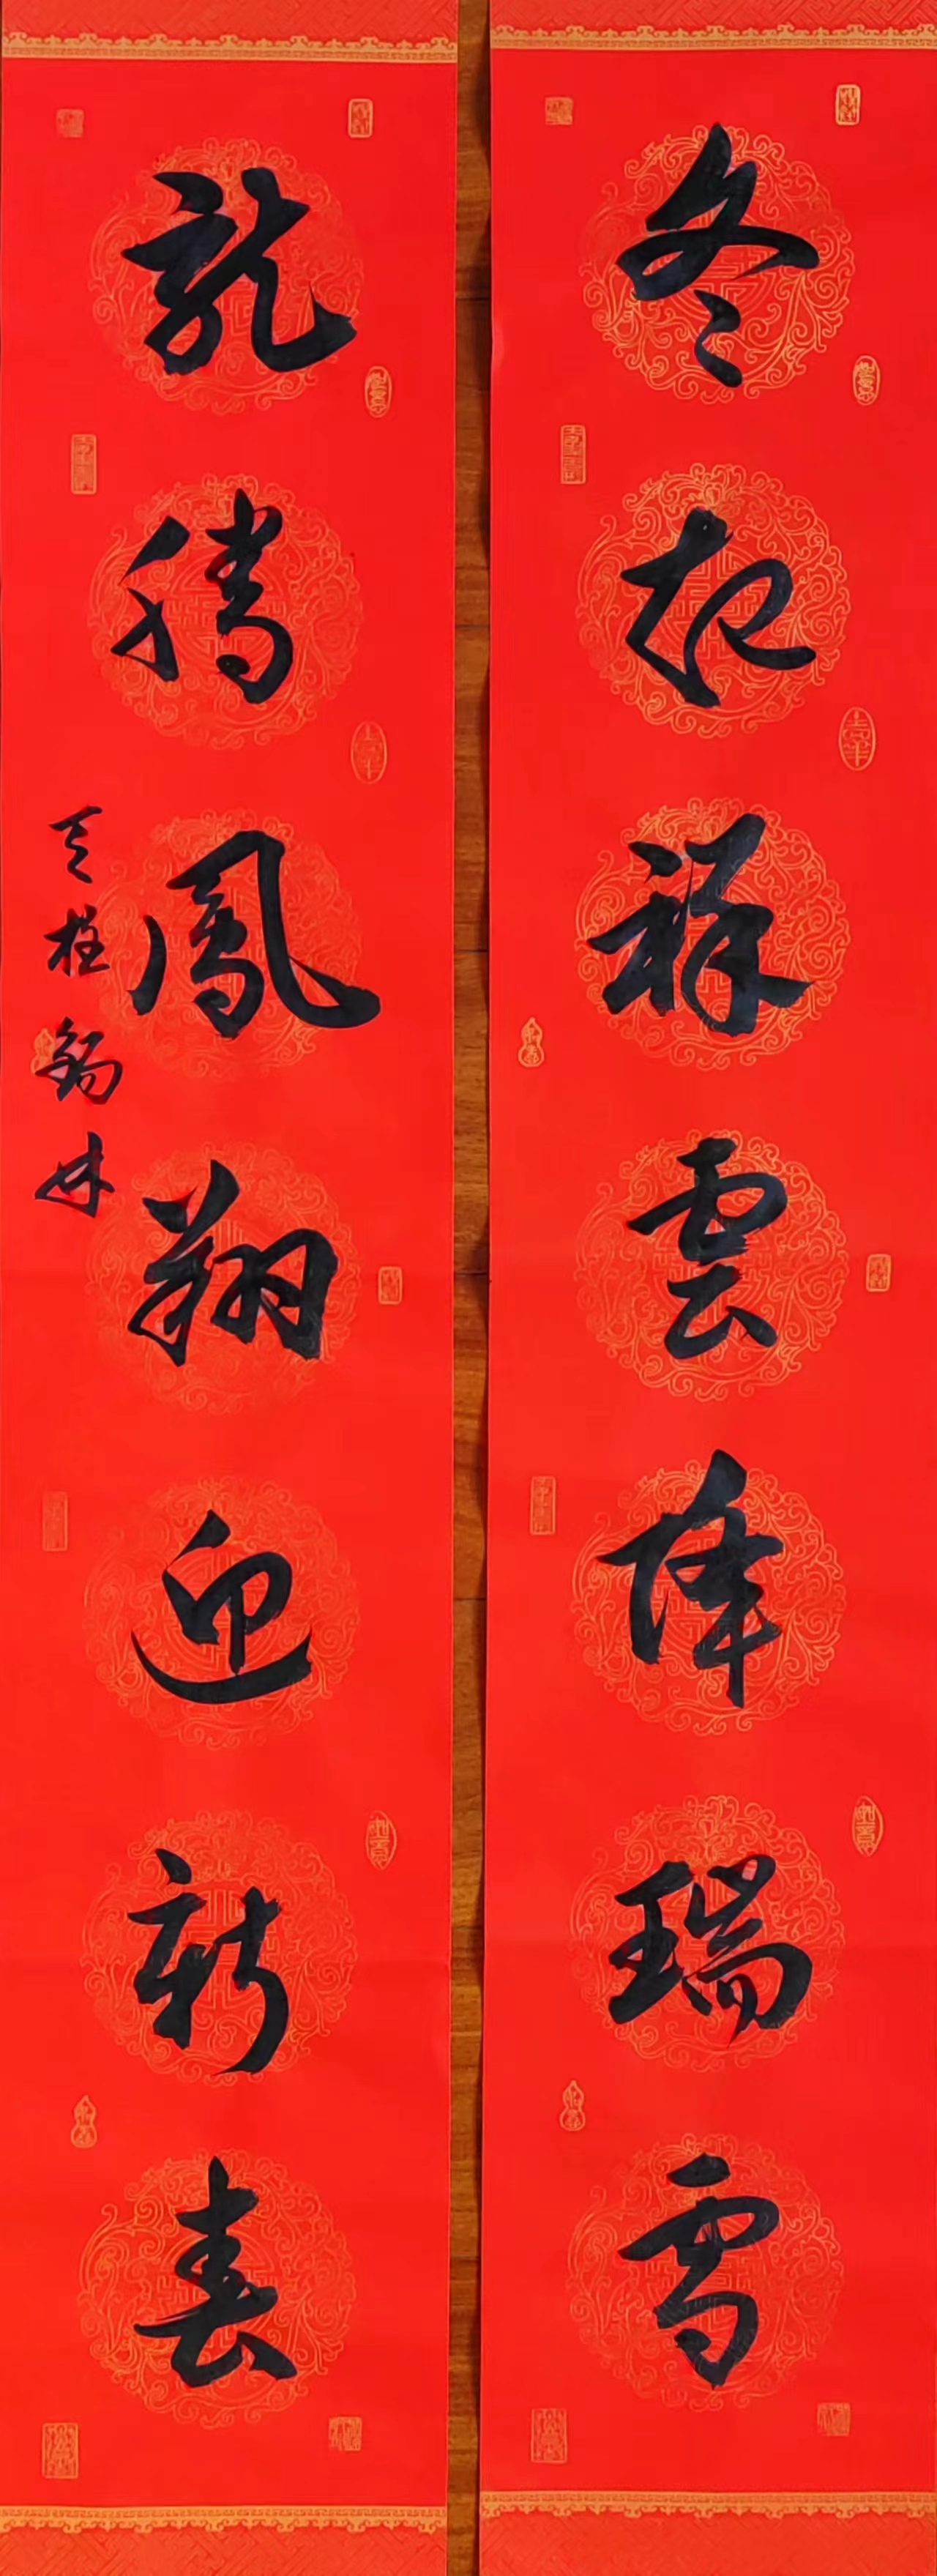 冬起祥雲降瑞雪
龍騰鳳翔迎新春
天柱